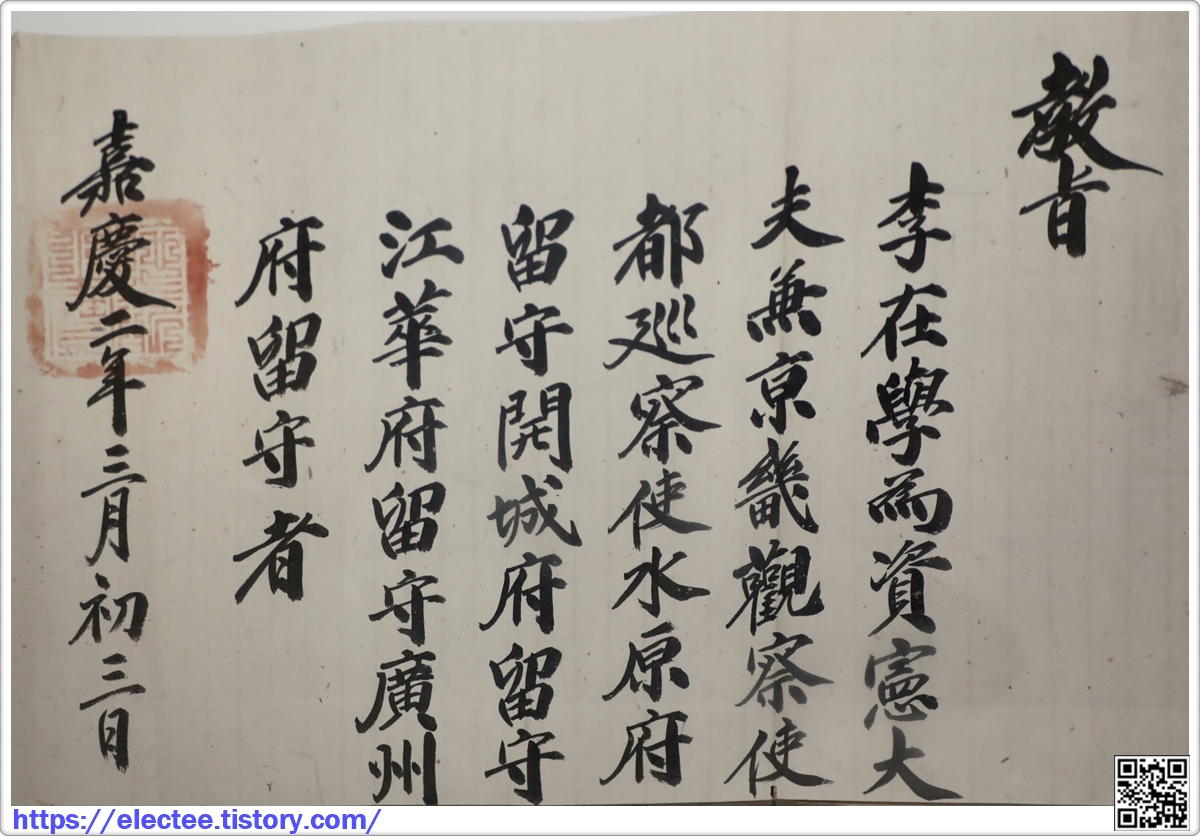 敎旨
李在學爲資憲大
夫兼京畿觀察使
都巡察使水原府
留守開城府留守
江華府留守廣州
府留守者
嘉慶二年三月初三日
https://electee.tistory.com/